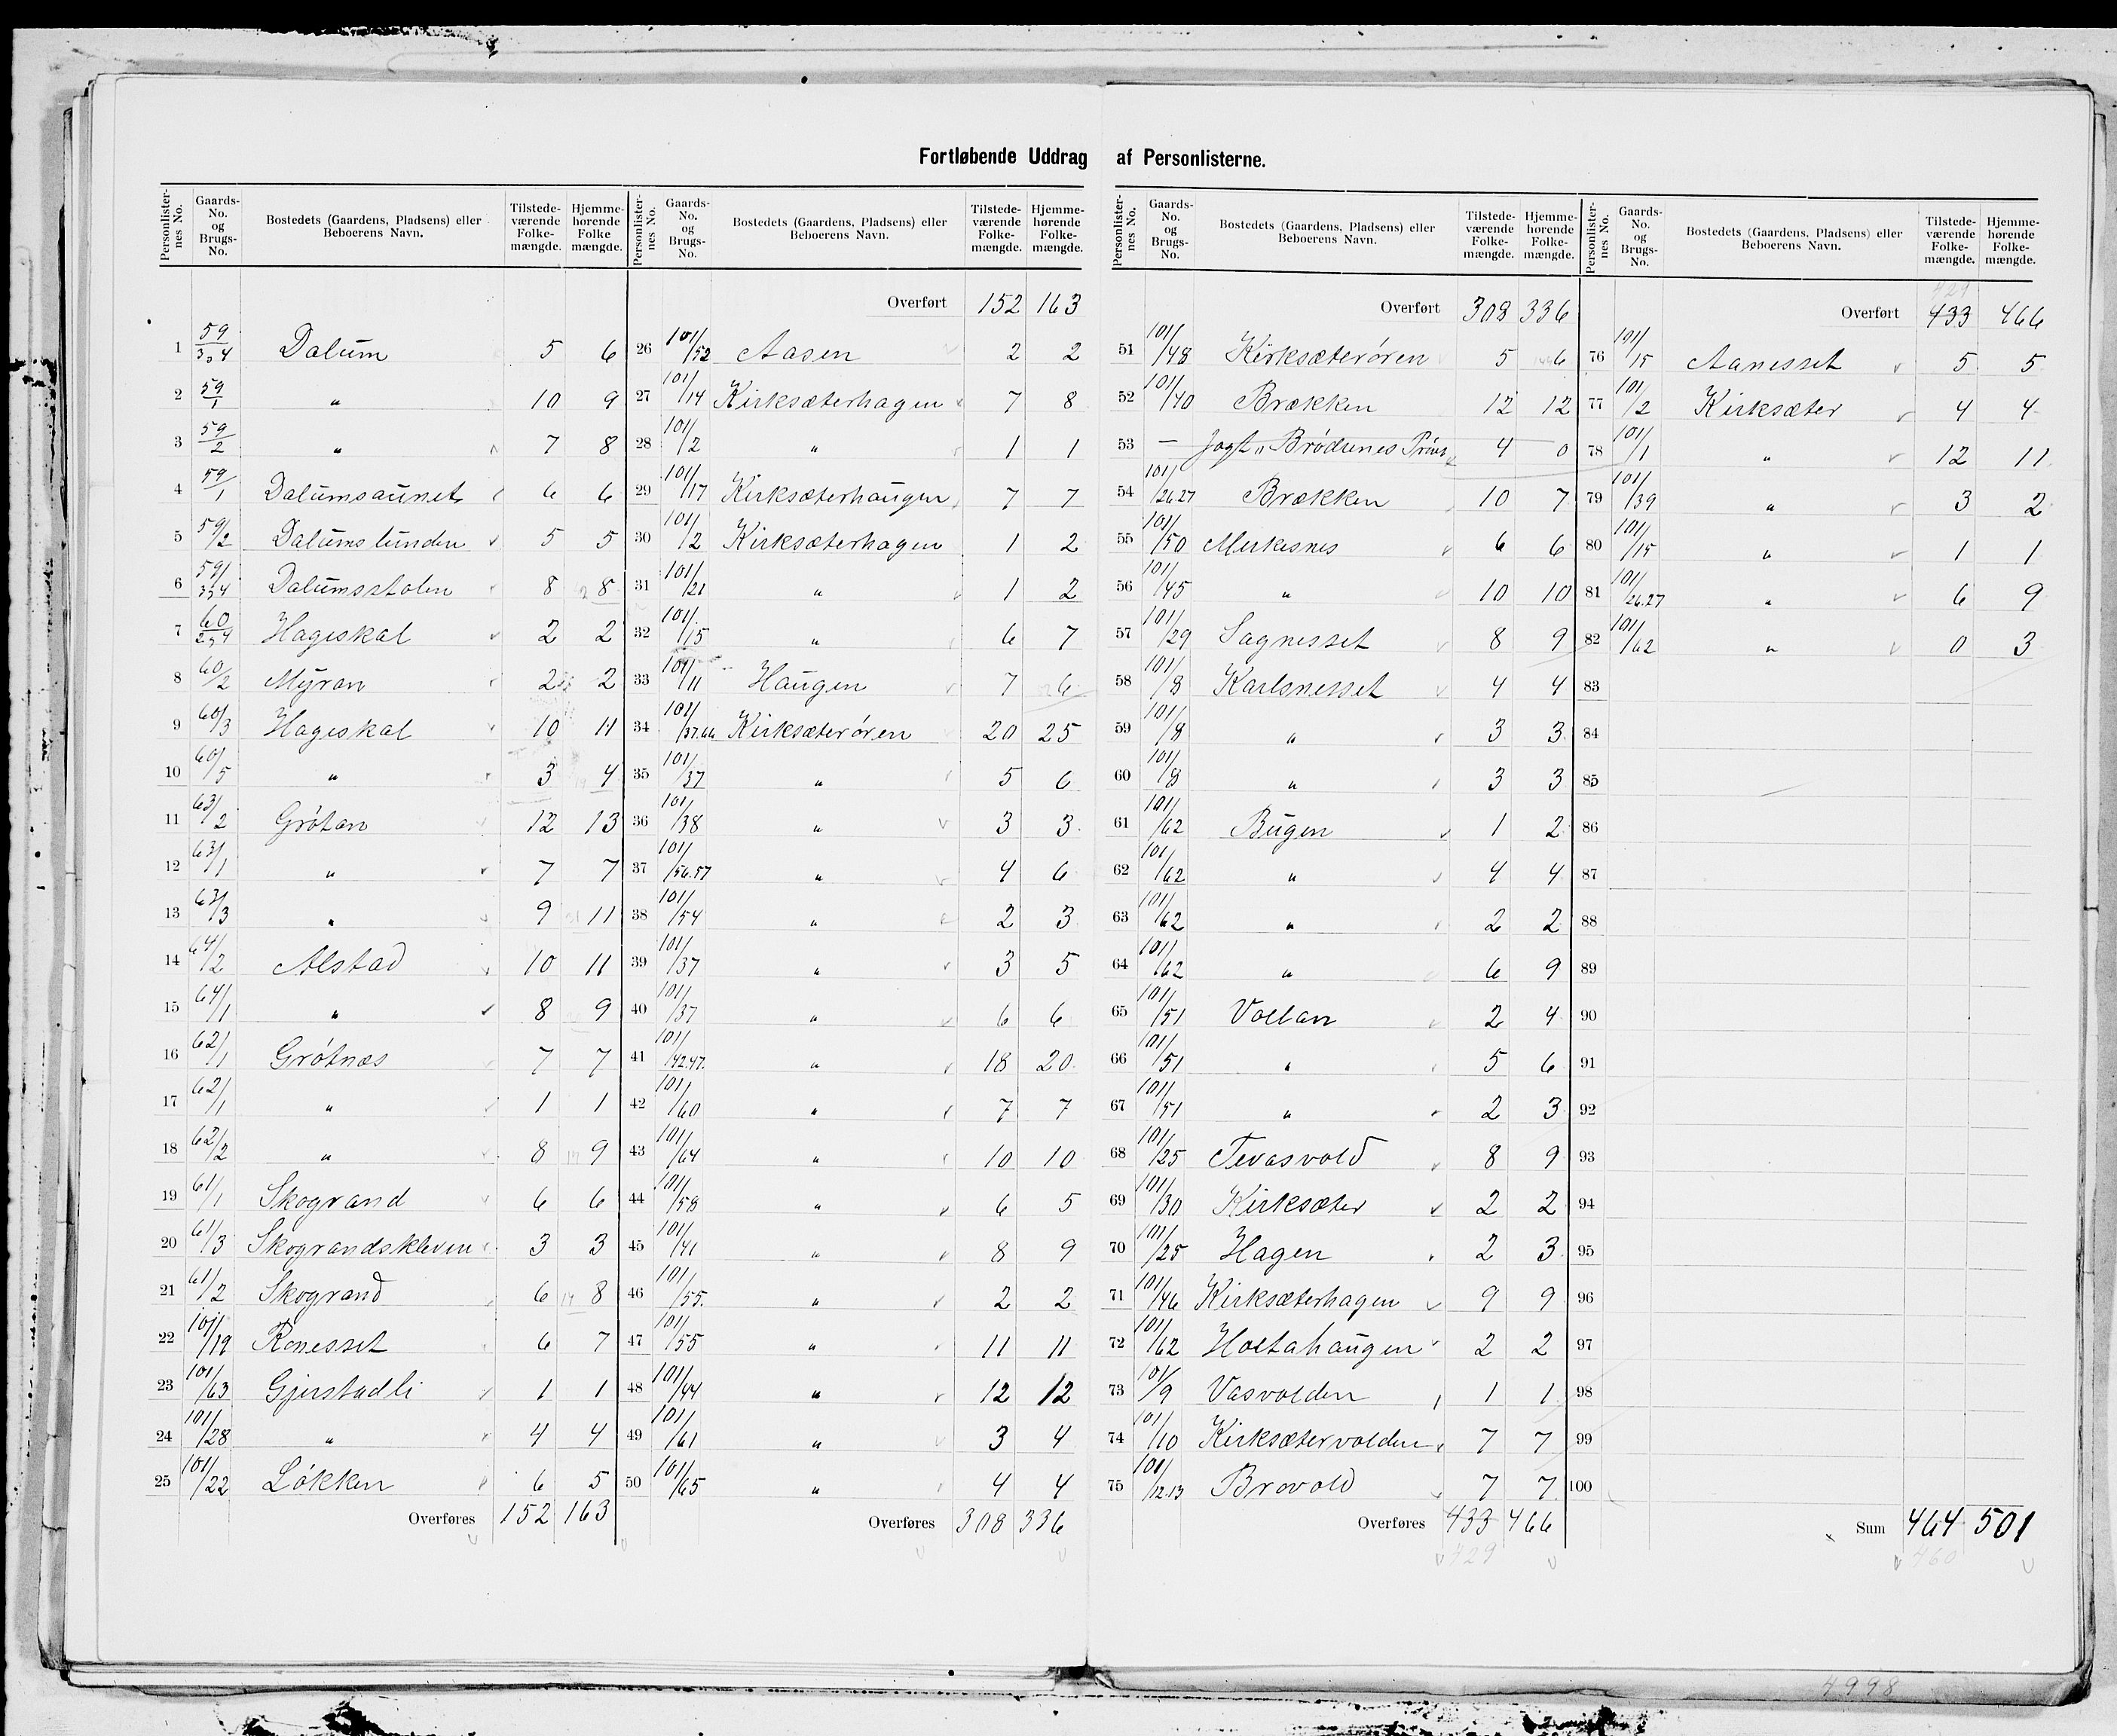 Fortløbende Uddrag af Personlisterne.
Personlisternes No. Gaards-No. og Brugs-No. Bostedets (Gaardens, Pladsens) eller Beboerens Navn. Tilstedeværende Folkemængde. Hjemmehørende Folke mængde.
1 59/3,4 Dalum 5 6
2 59/1 " 10 9
3 59/2 " 7 8
4 59/1 Dalumsaunet 6 6
5 59/2 Dalumslunden 5 5
6 59/3,4 Dalumsstolen 8 8
7 60/2,4 Hageskal 2 2
8 60/2 Myran 2 2
9 60/3 Hageskal 10 11
10 60/5 " 3 4
11 63/2 Grótan 12 13
12 63/1 " 7 7
13 63/3 " 9 11
14 64/2 Alstad 10 11
15 64/1 " 8 9
16 62/1 Grótnæs 7 7
17 62/1 " 1 1
18 62/2 " 8 9
19 61/1 Skogrand 6 6
20 61/3 Skograndskleven 3 3
21 61/2 Skogrand 6 8
22 101/19 Ronesset 6 7
23 101/63 Gjerstadli 1 1
24 101/28 " 4 4
25 101/22 Lókken 6 5
Overføres 152 163
Personlisternes No. Gaards-No. og Brugs-No. Bostedets (Gaardens, Pladsens) eller Beboerens Navn. Tilstedeværende Folkemængde. Hjemmehørende Folkemængde.
Overført 152 163
26 101/52 Aasen 2 2
27 101/14 Kirksæterhagen 7 8
28 101/2 " 1 1
29 101/17 Kirksæterhaugen 7 7
30 101/2 Kirksæterhagen 1 2
31 101/21 " 1 2
32 101/15 " 6 7
33 101/11 Haugen 7 6
34 101/37.66 Kirksæterøren 20 25
35 101/37 " 5 6
36 101/38 " 3 3
37 101/56.57 " 4 6
38 101/54 " 2 3
39 101/37 " 3 5
40 101/37 " 6 6
41 101/42.47. " 18 20
42 101/60 " 7 7
43 101/64 " 10 10
44 101/58 " 6 5
45 101/41 " 8 9
46 101/55. " 2 2
47 101/55 " 11 11
48 101/44 " 12 12
49 101/61 " 3 4
50 101/65 " 4 4
Overføres 308 336
Personlisternes No. Gaards-No. og Brugs-No. Bostedets (Gaardens, Pladsens) eller Beboerens Navn. Tilstedeværende Folkemængde. Hjemmehørende Folkemængde.
Overført 308 336
51 101/48 Kirksæterøren 5 6
52 101/40 Brækken 12 12
53 — Jagt „Brødrenes 4 0
54 101/26.27 Brækken 10 7
55 101/50 Merkesnes 6 6
56 101/45 " 10 10
57 101/29 Sagnesset 8 9
58 101/8 Karlsnesset 4 4
59 101/8 " 3 3
60 101/8 " 3 3
61 101/62 Bugen 1 2
62 101/62 " 4 4
63 101/62 " 2 2
64 101/62 " 6 9
65 101/51 Vollan 2 4
66 101/51 " 5 6
67 101/51 " 2 3
68 101/25 Tevasvold 8 9
69 101/30 Kirksæter 2 2
70 101/25 Hagen 2 3
71 101/46 Kirksæterhagen 9 9
72 101/62 Holtahaugen 2 2
73 101/9 Vasvolden 1 1
74 101/10 Kirksætervolden 7 7
75 101/12.13 Brovold 7 7
Overføres 433 466
429
Personlisternes No. Gaards-No. og Brugs-No. Bostedets (Gaardens, Pladsens) eller Beboerens Navn. Tilstedeværende Folkemængde. Hjemmehørende Folkemængde.
429
Overført 433 466
76 101/15 Aanesset 5 5
77 101/2 Kirksæter 4 4
78 101/1 " 12 11
79 101/39 " 3 2
80 101/15 " 1 1
81 101/26.27 " 6 9
82 101/62 " 0 3
83
84
85
86
87
88
89
90
91
92
93
94
95
96
97
98
99
100
Sum 464 501
460
4998